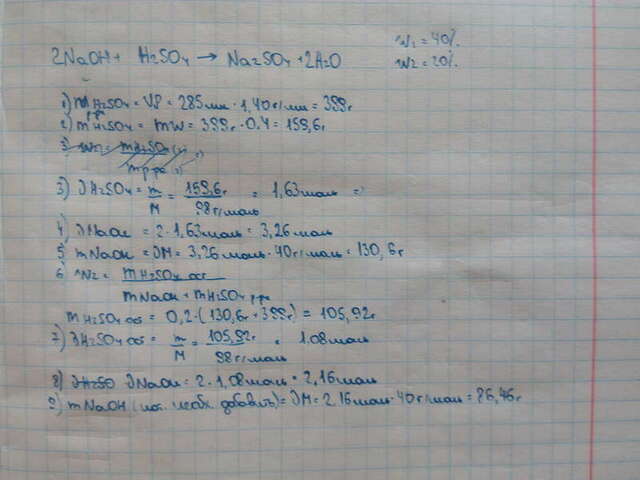 2NaOH + H2SO4 → Na2SO4 + 2H2O
w1 = 40%.
w2 = 20%.
1) mH2SO4 = Vρ = 285мл · 1,40г/мл = 399г
р-ра
2) mH2SO4 = mw = 399г · 0,4 = 159,6г
3) w2 = mH2SO4(2)
mр-ра(2)
3) νH2SO4 = m/M = 159,6г/98г/моль = 1,63моль =>
4) νNaOH = 2 · 1,63моль = 3,26моль
5) mNaOH = νM = 3,26моль · 40г/моль = 130,6г
6) w2 = mH2SO4 ост
mNaOH + mH2SO4 р-ра
mH2SO4 ост = 0,2 · (130,6г + 399г) = 105,92г
7) νH2SO4 ост = m/M = 105,92г/98г/моль = 1.08моль
8) νH2SO νNaOH = 2 · 1,08моль = 2,16моль
9) mNaOH (необх. добавить) = νM = 2,16моль · 40г/моль = 86,46г